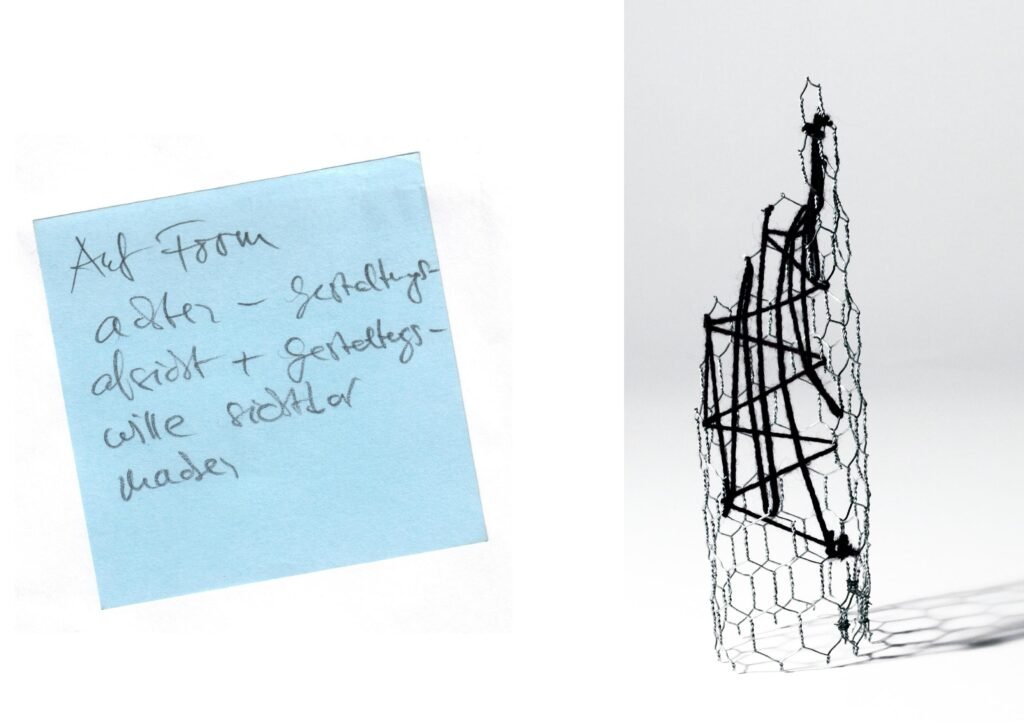 Auf Form
achten – Gestaltungs-
absicht + Gestaltungs-
wille sichtbar
machen